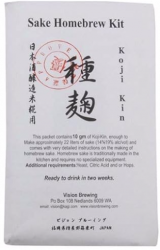 Sake Homebrew Kit
日本酒醸造米糀用
種麹
Koji Kin
This packet contains 10 gm of Koji Kin, enough to
Make approximately 22 liters of sake (14%19% alc/vol) and
comes with very detailed instructions on the making of
homebrew sake. Homebrew sake is traditionally made in the
kitchen and requires no specialized equipment.
Additional requirements Yeast, Citric Acid and or Hops
Ready to drink in two weeks.
Vision Brewing
Po Box 109 Nedlands 6009 WA.
ビジョン ブルーイング